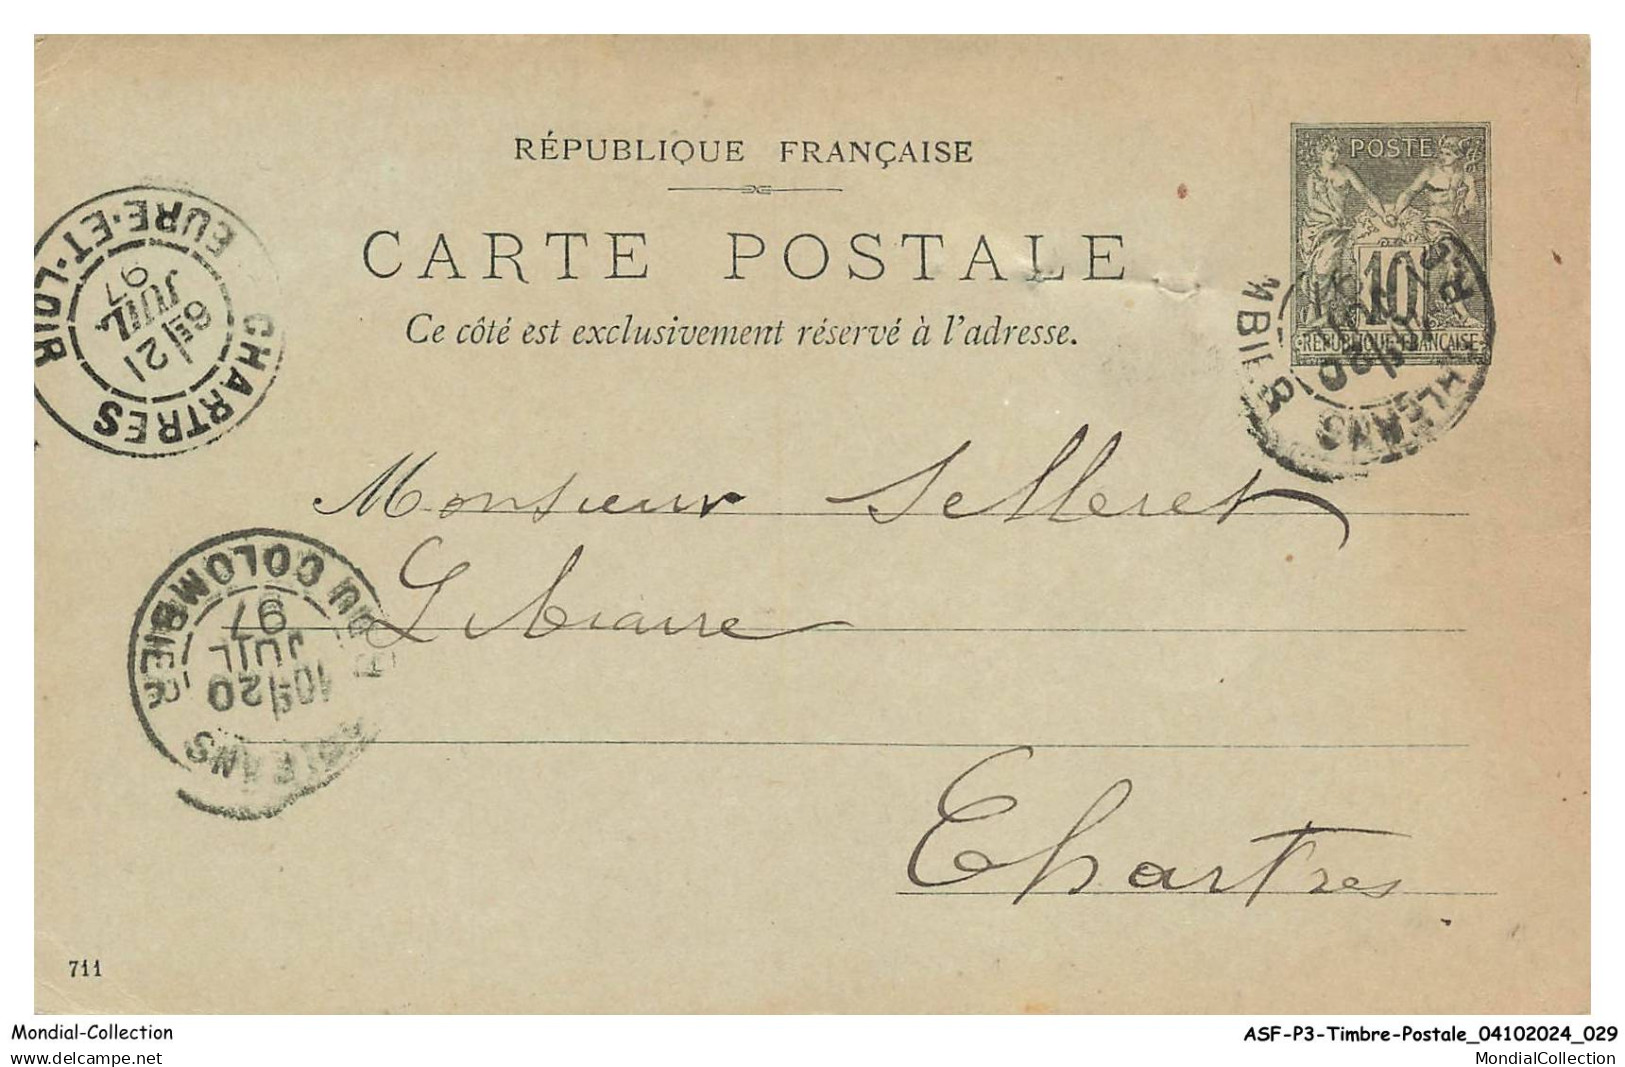 RÉPUBLIQUE FRANÇAISE
CARTE POSTALE
Ce côté est exclusivement réservé à l'adresse.
POSTE
10
RÉPUBLIQUE FRANÇAISE
CHARTRES
EURE-ET-LOIR
6E 21
JUIL.
97
Monsieur Selleret
Libraire
Chartres
R. DU COLOMBIER
ORLEANS
10E 20
JUIL
97
711
Mondial-Collection
delcampe.net
ASF-P3-Timbre-Postale_04102024_029
MondialCollection